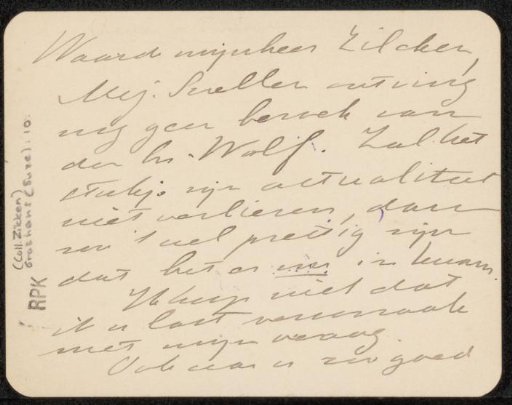 Waarde mijnheer Zilcken,
Mej. Sneller ontving
nog geen bezoek van
den hr. Wolf. Zal het
stukje zijn actualiteit
niet verliezen, dan
zou 't wel prettig zijn
dat het er in kwam.
Ik hoop niet dat
ik u last veroorzaak
met mijn vraag.
U is zoo goed
(Coll. Zilcken)
RPK